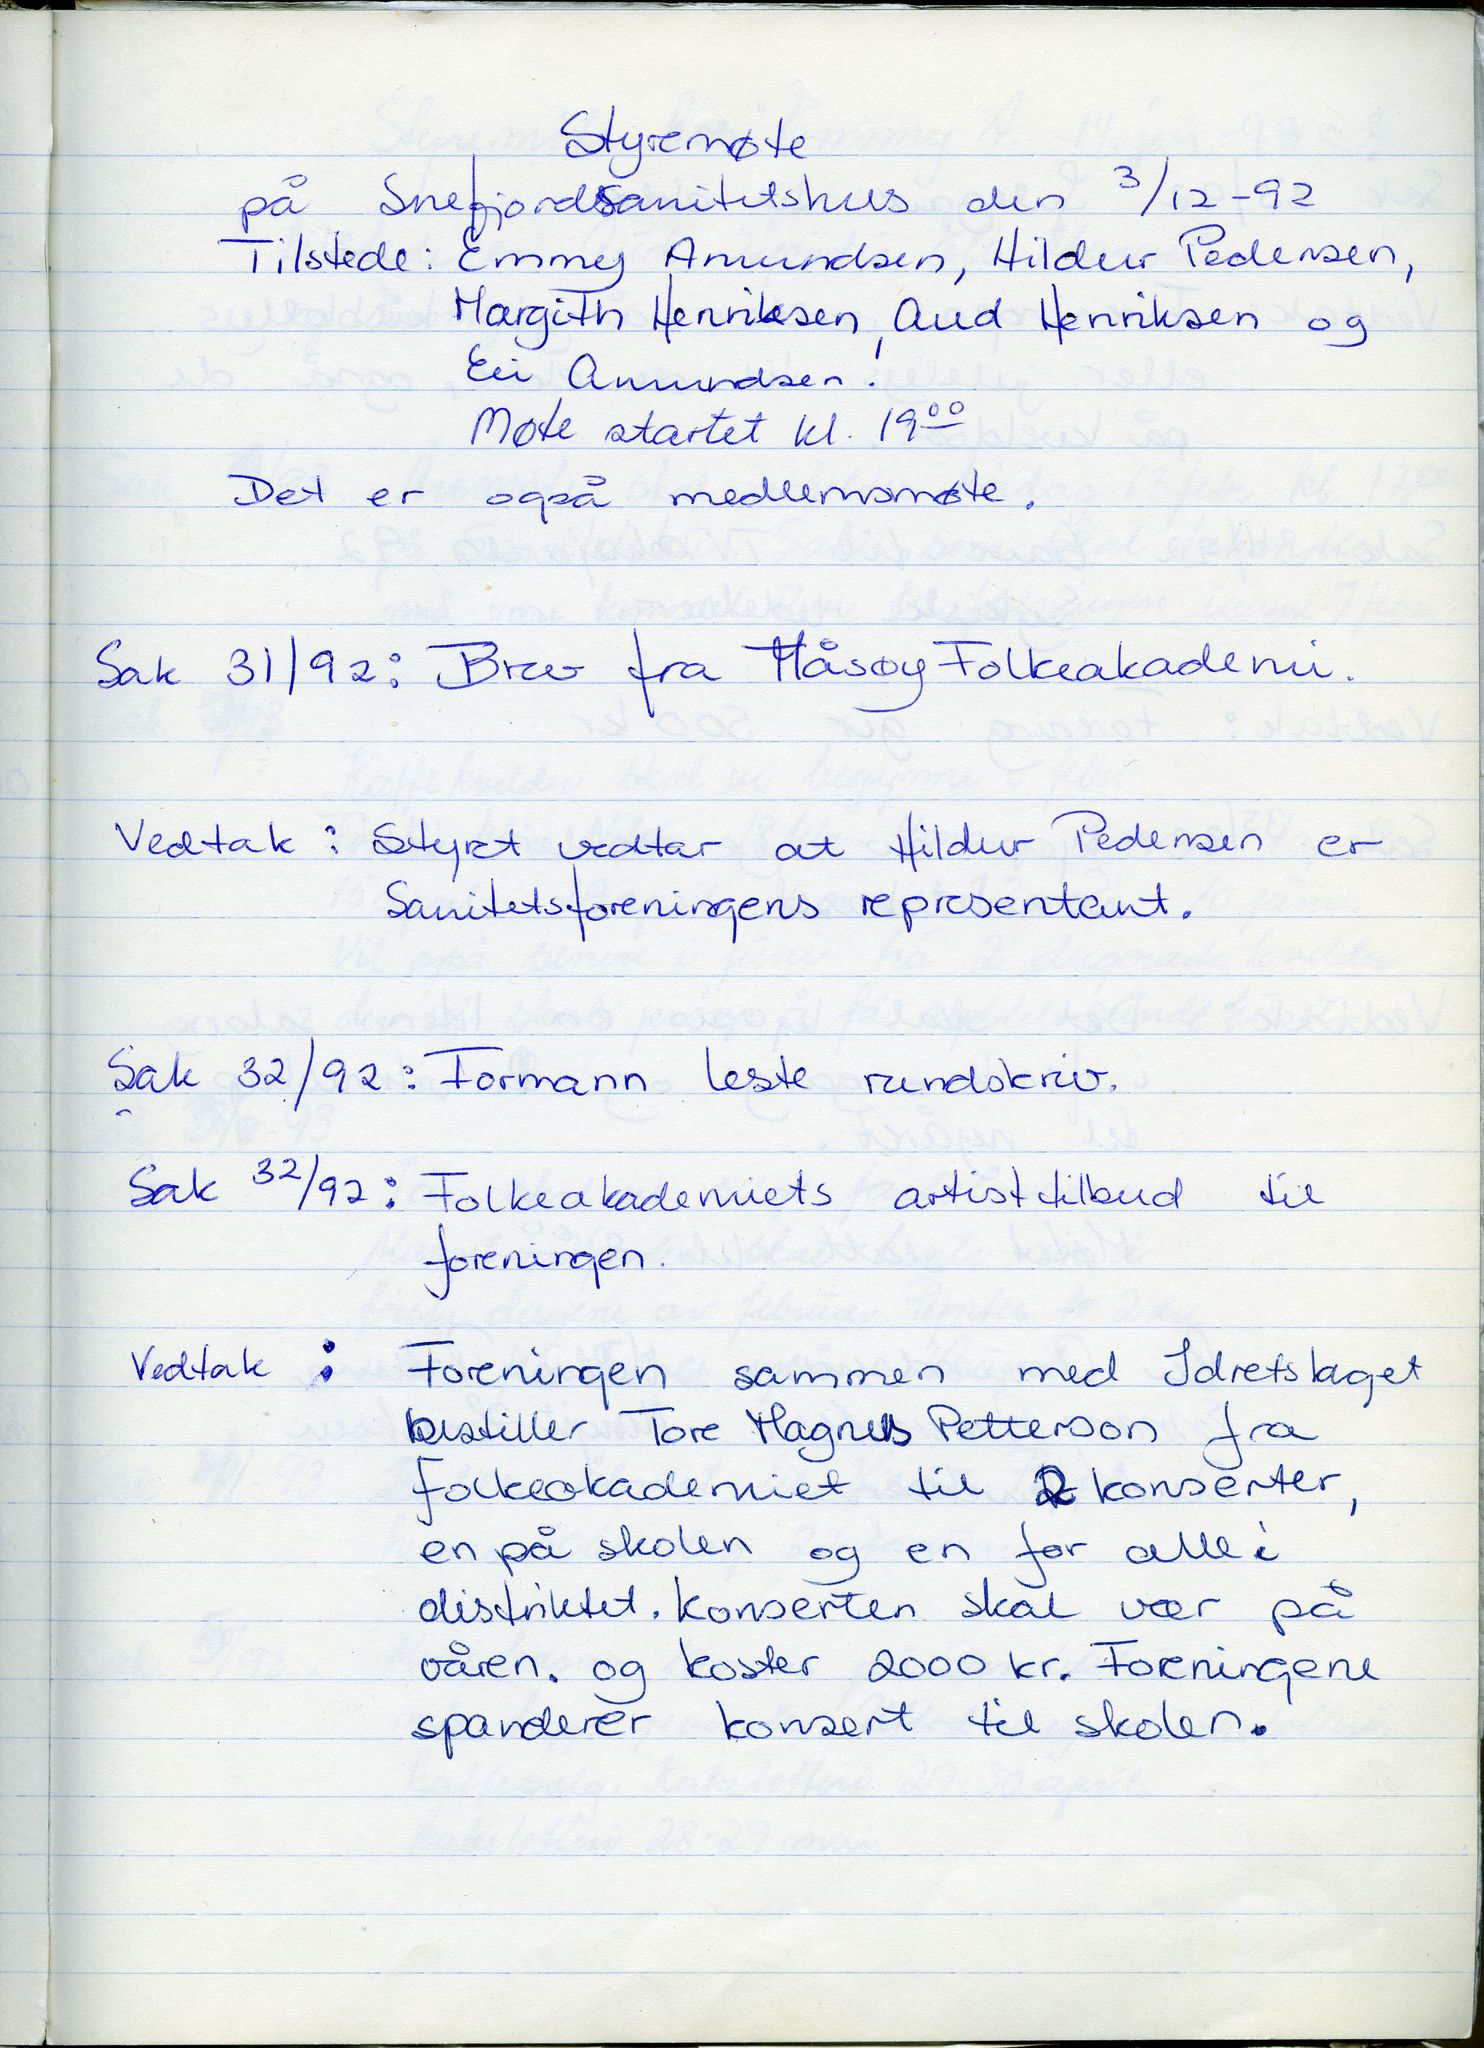 Styremøte
på Snefjord Sanitetshus den 3/12-92
Tilstede: Emmy Amundsen, Hildur Pedersen,
Margith Henriksen, Aud Henriksen og
Eli Amundsen.
Møte startet kl. 19 00
Det er også medlemsmøte.
Sak 31/92: Brev fra Måsøy Folkeakademi.
Vedtak: Styret vedtar at Hildur Pedersen er
Sanitetsforeningens representant.
Sak 32/92: Formann leste rundskriv.
Sak 32/92: Folkeakademiets artisttilbud til
foreningen.
Vedtak: Foreningen sammen med Idretslaget
bestiller Tore Magnus Petterson fra
folkeakademiet til 2 konserter,
en på skolen og en for alle i
distriktet. Konserten skal vær på
våren. og koster 2000 kr. Foreningene
spanderer konsert til skolen.